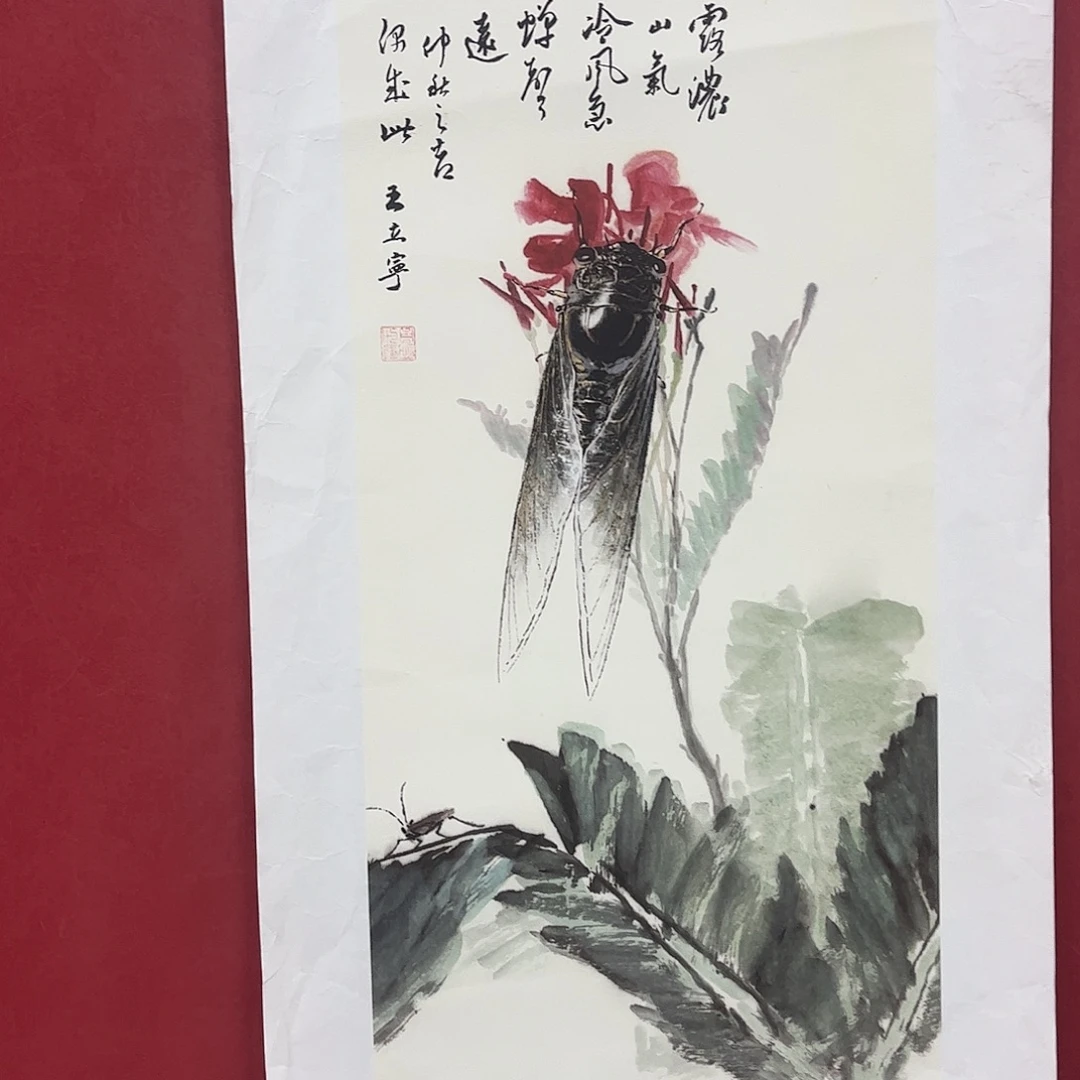 露濃
山氣
冷風急
蟬聲
遠
仲秋之吉
偶成此
王立寧